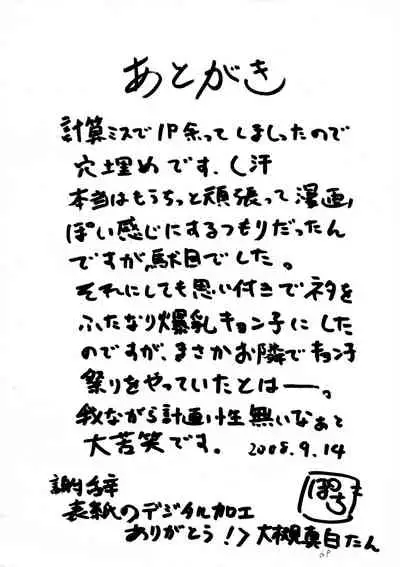 あとがき
計算ミスで1P余ってしましったので
穴埋めです、(汗
本当はもうちっと頑張って漫画っ
ぽい感じにするつもりだったん
ですが駄目でした。
それにしても思い付きでネタを
ふたなり爆乳キョン子にした
のですが、まさかお隣でキョン子
祭りをやっていたとは―。
我ながら計画性無いなぁと
大苦笑です。 2008.9.14
謝辞
表紙のデジタル加工
ありがとう!>大槻真白たん